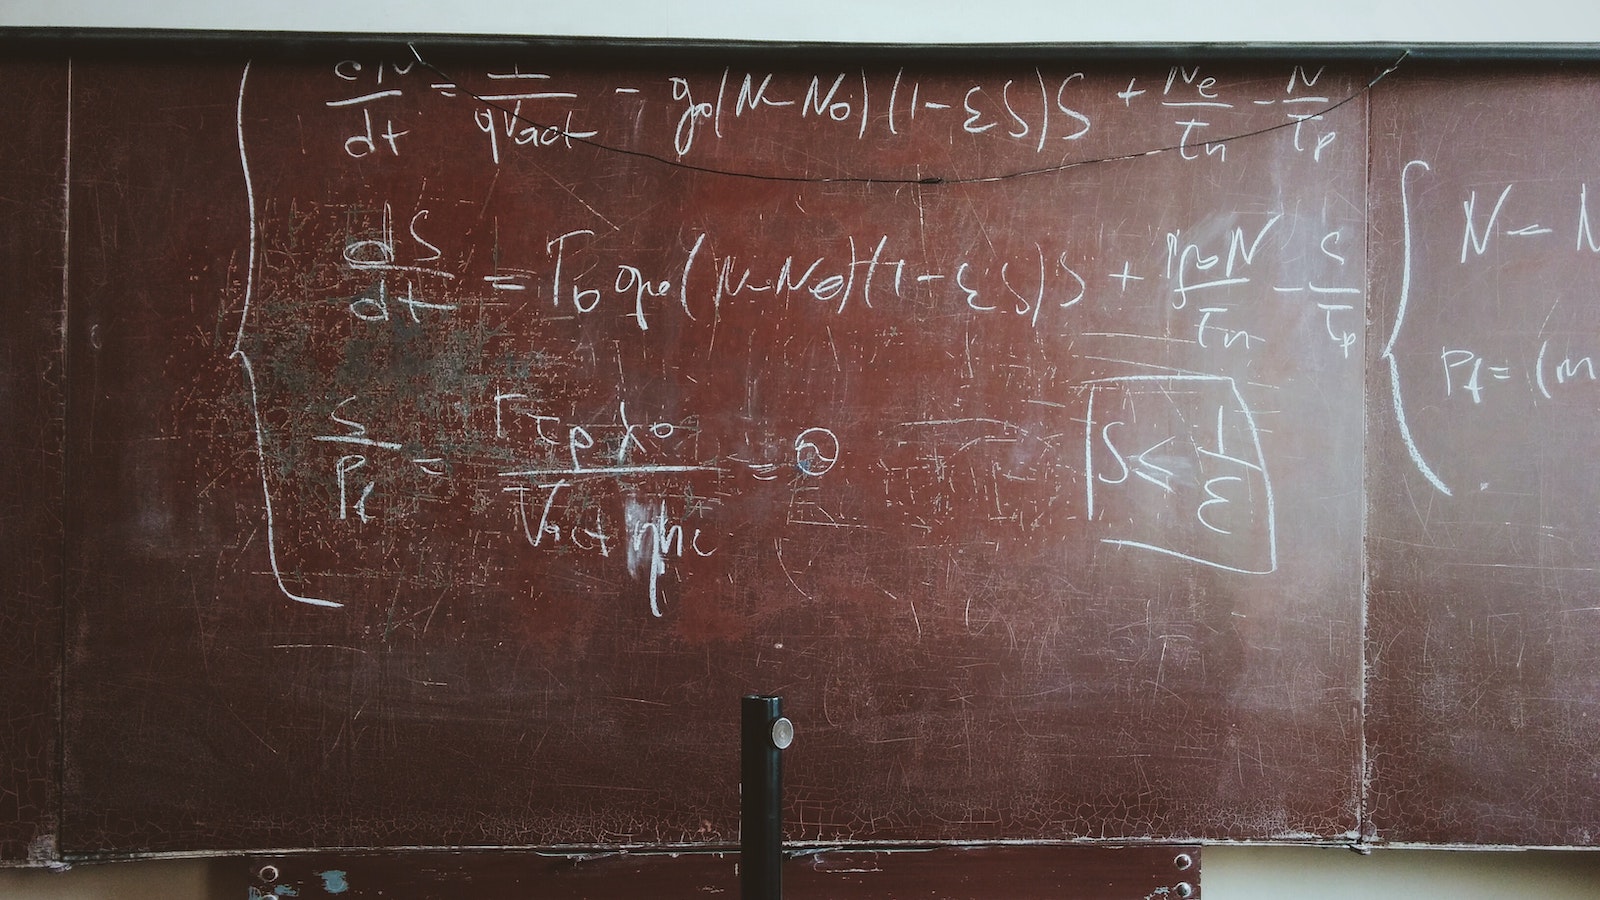 dN/dt = I/qVact - g₀(N-N₀)(1-εS)S + Ne/τn - N/τp
dS/dt = Γ₀g₀(N-N₀)(1-εS)S + N/τn - S/τp
S/Pf = Γτpλ₀/Vact ηhc =
S ≤ 1/ε
N - N
Pf = (m